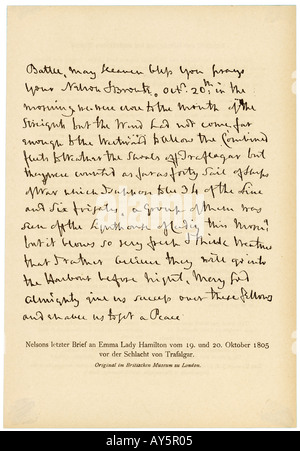 Battle, may heaven bless you prays
your Nelson & Bronte, Octr. 20th in the
morning we were close to the mouth of the
Streights but the Wind had not come far
enough to the Westward to allow the Combined
fleets to Weather the Shoals off Traflagar but
they were counted as far as forty Sail of Ships
of War which I suppose to be 34 of the Line
and Six frigates, a Group of them was
seen off the Lighthouse of Cadiz this Morng
but it blows so very fresh & thick Weather
that I rather believe they will go into
the Harbour before night, May God
Almighty give us success over these fellows
and enable us to get a Peace
Nelsons letzter Brief an Emma Lady Hamilton vom 19. und 20. Oktober 1805
vor der Schlacht von Trafalgar.
Original im Britischen Museum zu London.
alamy
www.alamy.com - AY5R05